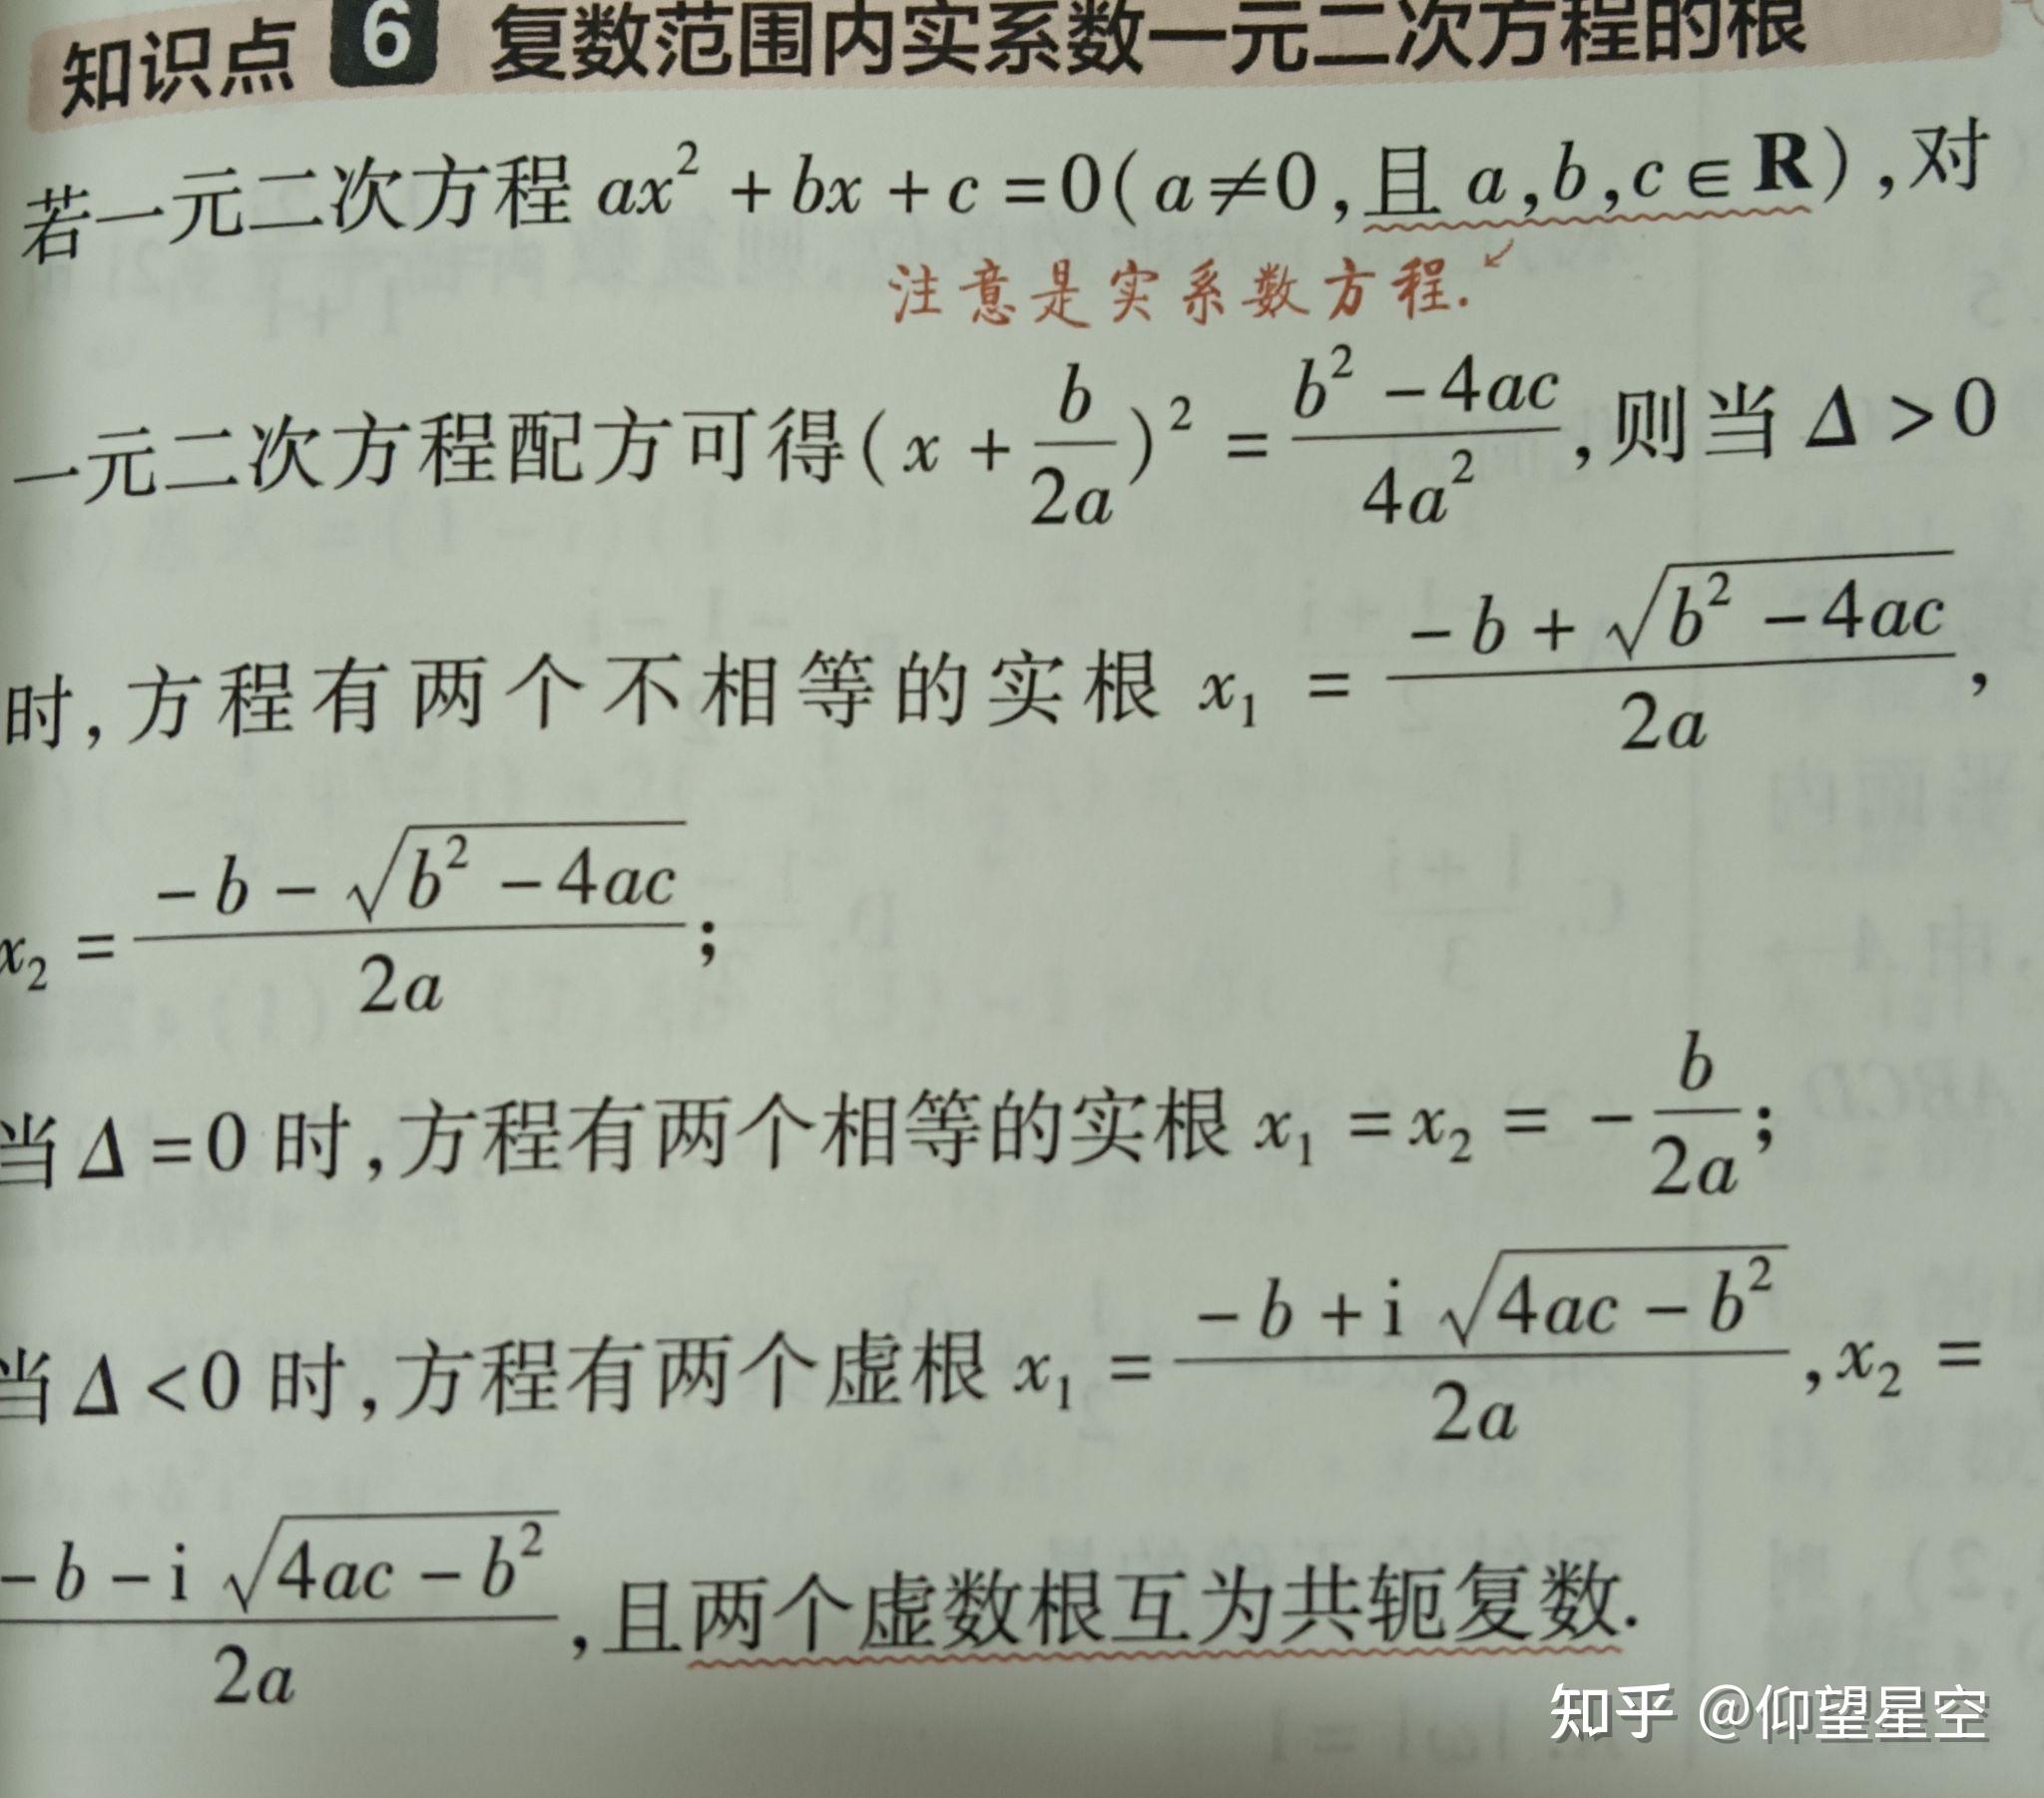 知识点 6 复数范围内实系数一元二次方程的根
若一元二次方程 ax² + bx + c = 0( a ≠ 0 ,且 a ,b ,c ∈ R ) ,对
注意是实系数方程.
一元二次方程配方可得( x + b/2a )² = (b² - 4ac)/4a² ,则当 Δ > 0
时,方程有两个不相等的实根 x₁ = (-b + √(b² - 4ac))/2a ,
x₂ = (-b - √(b² - 4ac))/2a ;
当 Δ = 0 时,方程有两个相等的实根 x₁ = x₂ = - b/2a ;
当 Δ < 0 时,方程有两个虚根 x₁ = (-b + i √(4ac - b²))/2a , x₂ =
(-b - i √(4ac - b²))/2a ,且两个虚数根互为共轭复数.
知乎 @仰望星空